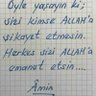 Öyle yaşayın ki;
sizi kimse ALLAH'a
şikayet etmesin.
Herkes sizi ALLAH'a
emanet etsin....
Âmin